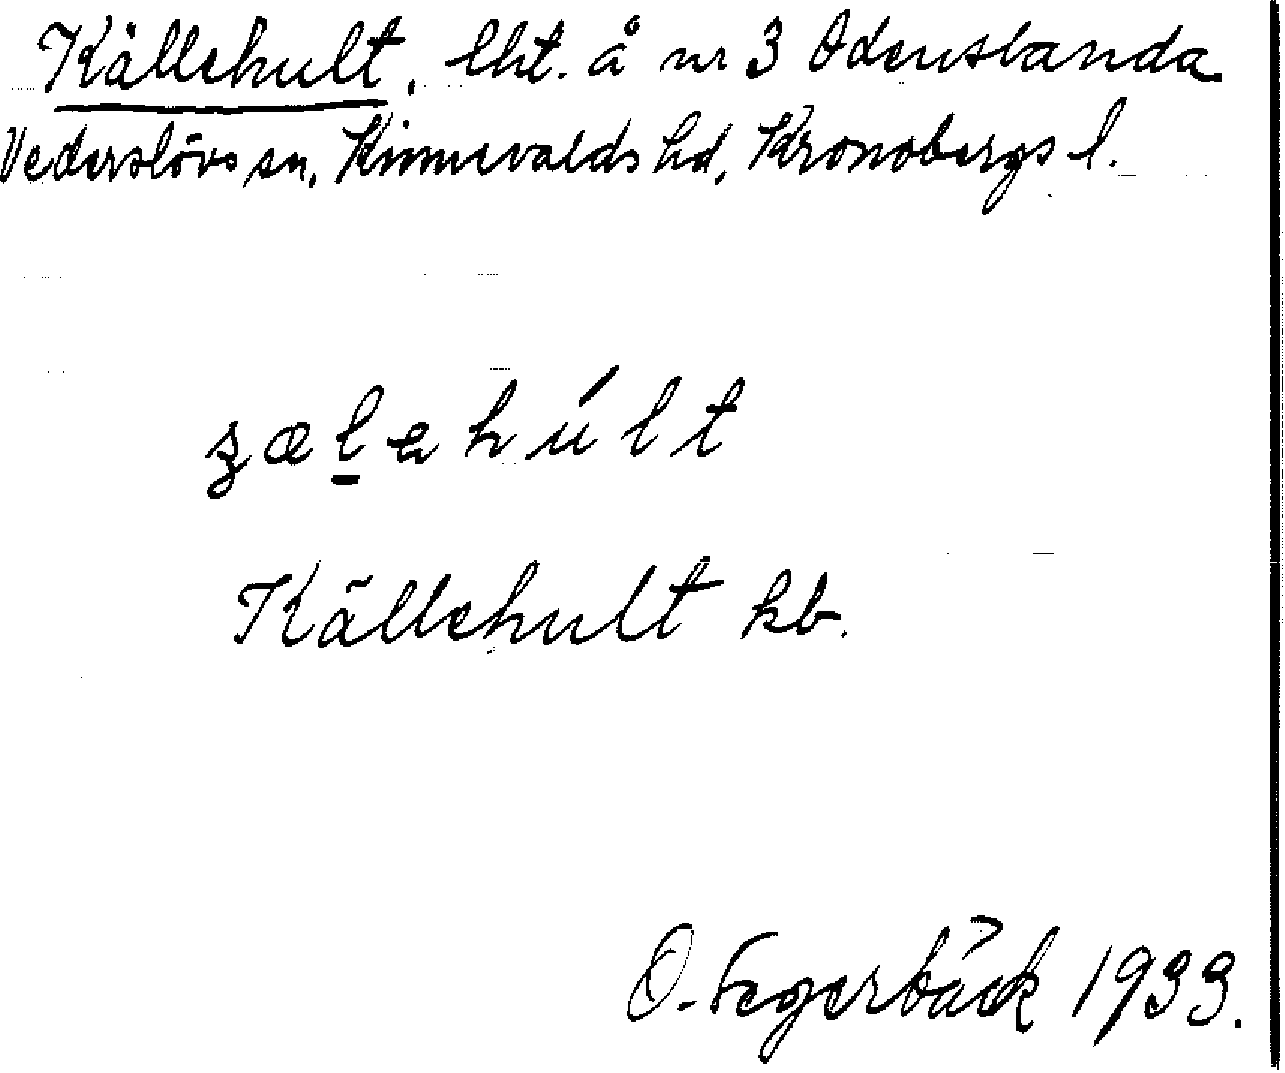 Källehult, lht. å nr 3 Odenslanda
Vederslövs sn, Kinnevalds hd, Kronobergs l.
ʒæl̲ehúlt
Källehult kb.
O. Fegerbäck 1933.